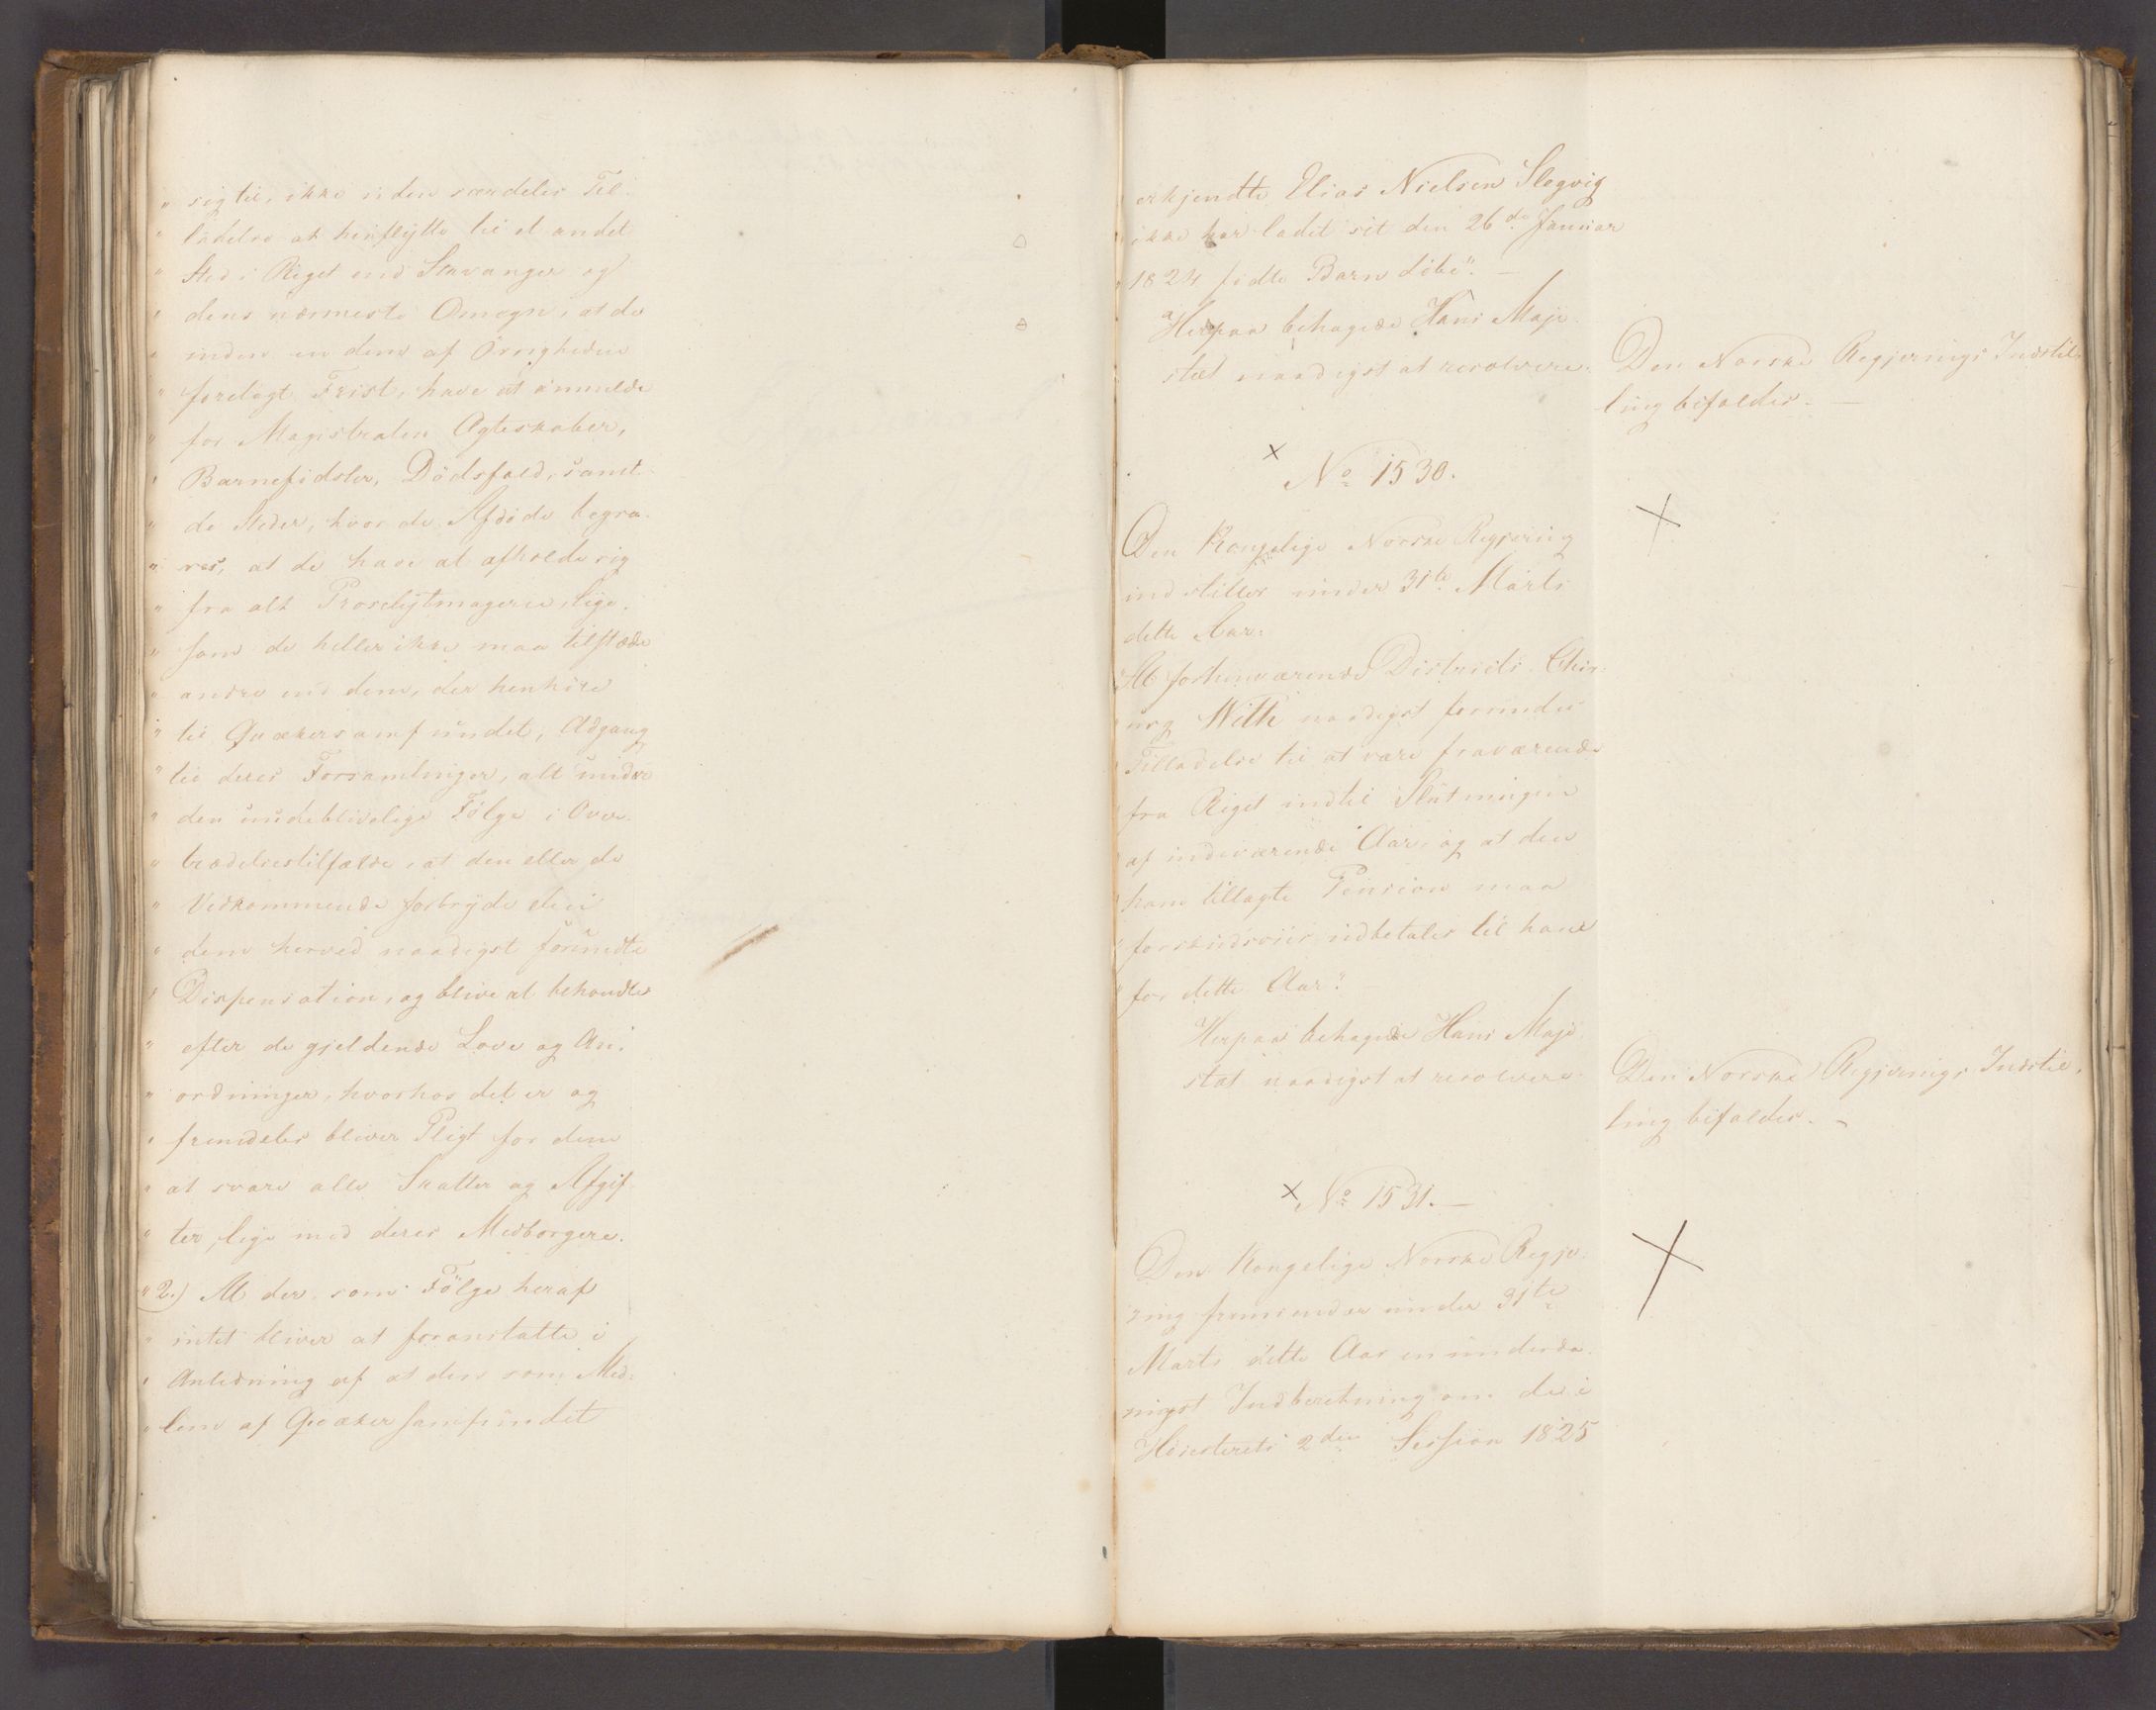 " sig til, ikke uden særdeles Til-
" ladelse at henflytte til et andet
" Sted i Riget end Stavanger og
" dens nærmeste Omegn, at de
" inden en dem af Övrigheden
" forelagt Frist, have at anmelde
" for Magistraten Ægteskaber,
" Barnefødsler, Dödsfald, samt
" de Steder, hvor de Afdöde begra-
" ves, at de have at afholde sig
" fra alt Proselytmageri, lige-
" som de heller ikke maa tilstæde
" andre end dem, der henhöre
" til Qvækersamfundet, Adgang
" til deres Forsamlinger, alt under
" den uudeblivelige Fölge i Over-
" trædelsestilfælde, at den eller de
" Vedkommende forbryde den
" dem herved naadigst forundte
" Dispensation, og blive at behandles
" efter de gjeldende Love og An-
" ordninger, hvorhos det er og
" fremdeles bliver Pligt for dem
" at svare alle Skatter og Afgif-
" ter, lige med deres Medborgere.
" 2.) At der som Fölge heraf
" intet bliver at foranstalte i
" Anledning af at den som Med-
" lem af Qvækersamfundet
erkjendte Elias Nielsen Slogvig
" ikke har ladet sit den 26de Januar
" 1824 födte Barn döbe". —
Herpaa behagede Hans Maje-
stæt naadigst at resolvere.
Den Norske Regjerings Indstil-
ling bifaldes. —
× No 1530.
Den Kongelige Norske Regjering
indstiller under 31te Marts
dette Aar:
At forhenværende Districts-Chir-
" urg With naadigst forundes
" Tilladelse til at være fraværende
" fra Riget indtil Slutningen
" af indeværende Aar, og at den
" ham tillagte Pension maa
" forskudsviis udbetales til ham
" for dette Aar".
Herpaa behagede Hans Maje-
stæt naadigst at resolvere.
Den Norske Regjerings Indstil-
ling bifaldes. —
× No 1531. —
Den Kongelige Norske Regje-
ring fremsender under 31te
Marts dette Aar en underda-
nigst Indberetning om de i
Höiesterets 2den Session 1825